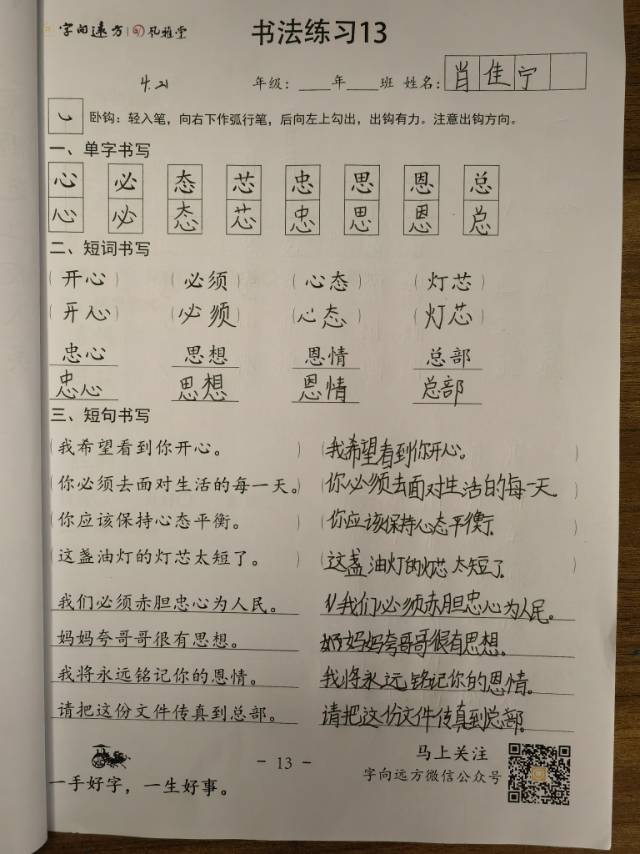 字向远方 风雅堂 书法练习13
4.21 年级：____年____班 姓名：肖佳宁
卧钩：轻入笔，向右下作弧行笔，后向左上勾出，出钩有力。注意出钩方向。
一、单字书写
心 必 态 芯 忠 思 恩 总
心 必 态 芯 忠 思 恩 总
二、短词书写
（开心）（必须）（心态）（灯芯）
（开心）（必须）（心态）（灯芯）
忠心 思想 恩情 总部
忠心 思想 恩情 总部
三、短句书写
（我希望看到你开心。）（我希望看到你开心。）
（你必须去面对生活的每一天。）（你必须去面对生活的每一天。）
（你应该保持心态平衡。）（你应该保持心态平衡。）
（这盏油灯的灯芯太短了。）（这盏油灯的灯芯太短了。）
我们必须赤胆忠心为人民。 我们必须赤胆忠心为人民。
妈妈夸哥哥很有思想。 妈妈夸哥哥很有思想。
我将永远铭记你的恩情。 我将永远铭记你的恩情。
请把这份文件传真到总部。 请把这份文件传真到总部。
一手好字，一生好事。
- 13 -
马上关注
字向远方微信公众号